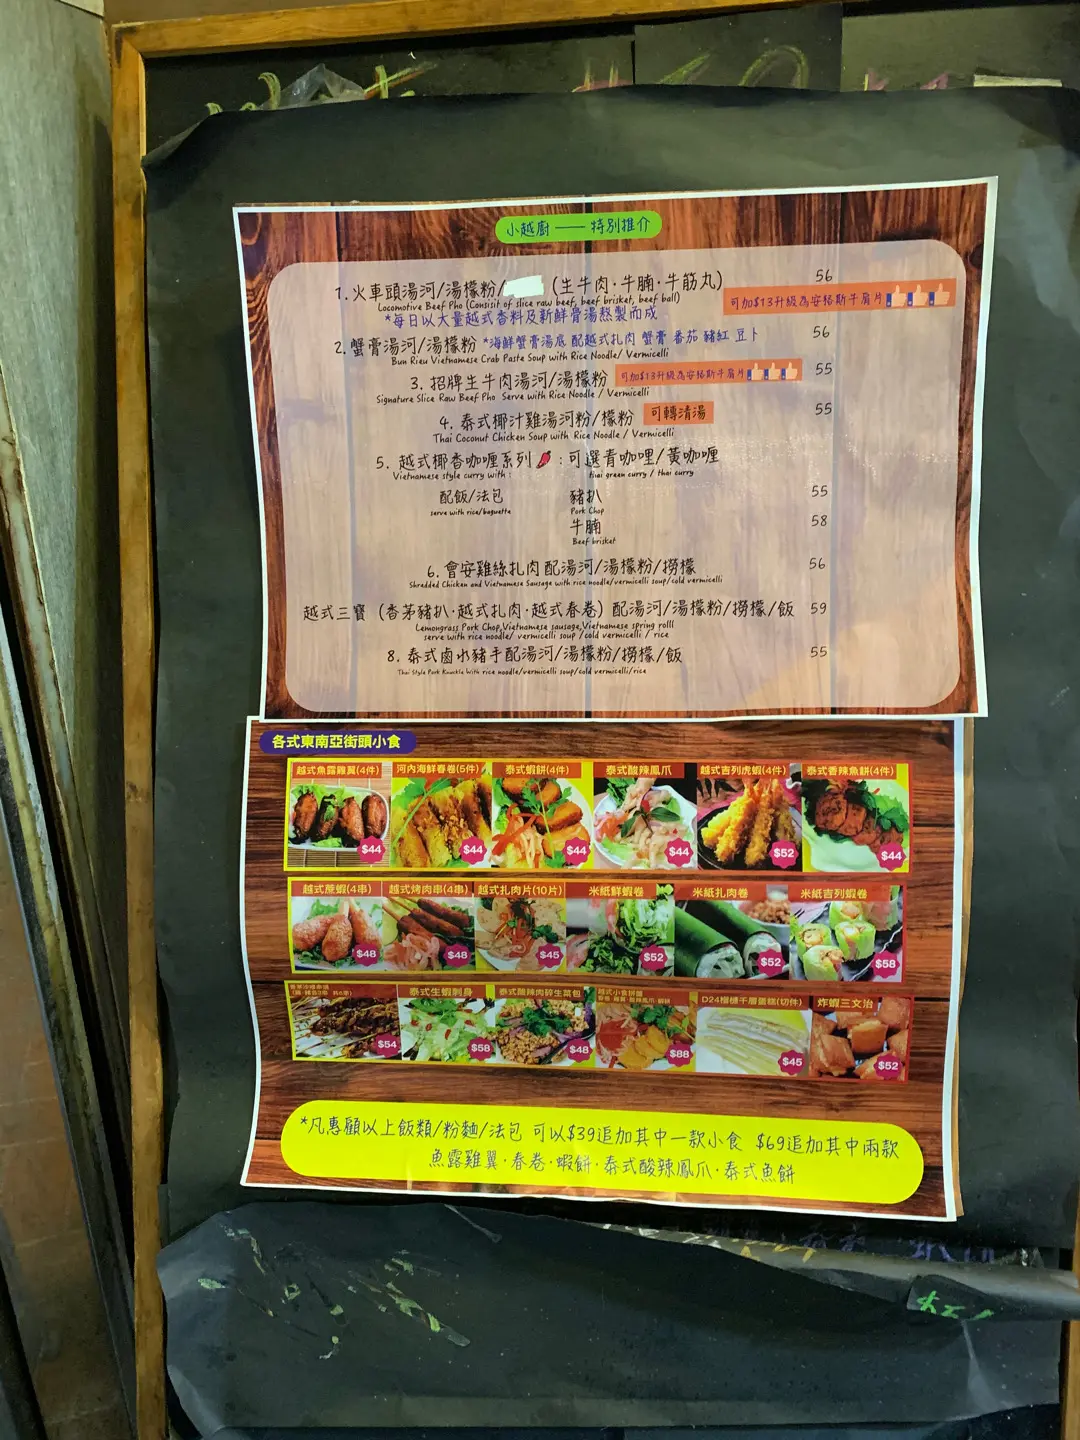 小越廚 —— 特別推介
1. 火車頭湯河/湯檬粉/ (生牛肉·牛腩·牛筋丸) 56
Locomotive Beef Pho (Consisit of slice raw beef, beef brisket, beef ball)
可加$13升級為安格斯牛肩片
*每日以大量越式香料及新鮮骨湯熬製而成
2. 蟹膏湯河/湯檬粉 *海鮮蟹膏湯底 配越式扎肉 蟹膏 番茄 豬紅 豆卜 56
Bun Rieu Vietnamese Crab Paste Soup with Rice Noodle/ Vermicelli
3. 招牌生牛肉湯河/湯檬粉 可加$13升級為安格斯牛肩片 55
Signature Slice Raw Beef Pho Serve with Rice Noodle / Vermicelli
4. 泰式椰汁雞湯河粉/檬粉 可轉清湯 55
Thai Coconut Chicken Soup with Rice Noodle / Vermicelli
5. 越式椰香咖喱系列 : 可選青咖哩/黃咖喱
Vietnamese style curry with : thai green curry / thai curry
配飯/法包 豬扒 55
serve with rice/baguette Pork Chop
牛腩 58
Beef brisket
6. 會安雞絲扎肉 配湯河/湯檬粉/撈檬 56
Shredded Chicken and Vietnamese Sausage with rice noodle/vermicelli soup/cold vermicelli
越式三寶 (香茅豬扒·越式扎肉·越式春卷) 配湯河/湯檬粉/撈檬/飯 59
Lemongrass Pork Chop,Vietnamese sausage,Vietnamese spring rolll
serve with rice noodle/ vermicelli soup /cold vermicelli / rice
8. 泰式鹵水豬手配湯河/湯檬粉/撈檬/飯 55
Thai Style Pork Knuckle With rice noodle/vermicelli soup/cold vermicelli/rice
各式東南亞街頭小食
越式魚露雞翼(4件) 河內海鮮春卷(5件) 泰式蝦餅(4件) 泰式酸辣鳳爪 越式吉列虎蝦(4件) 泰式香辣魚餅(4件)
$44 $44 $44 $44 $52 $44
越式蔗蝦(4串) 越式烤肉串(4串) 越式扎肉片(10片) 米紙鮮蝦卷 米紙扎肉卷 米紙吉列蝦卷
$48 $48 $45 $52 $52 $58
泰式生蝦刺身 泰式酸辣肉碎生菜包 越式小食拼盤 D24榴槤千層蛋糕(切件) 炸蝦三文治
$54 $58 $48 $88 $45 $52
*凡惠顧以上飯類/粉麵/法包 可以$39追加其中一款小食 $69追加其中兩款
魚露雞翼·春卷·蝦餅·泰式酸辣鳳爪·泰式魚餅